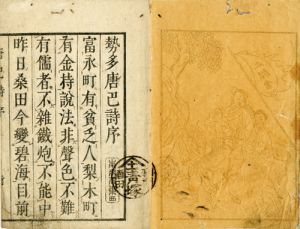 勢多唐巴詩序
富永町有貧乏人梨木町
有金持說法非聲色不難
有儒者不雜鐵炮不能中
昨日桑田今變碧海目前